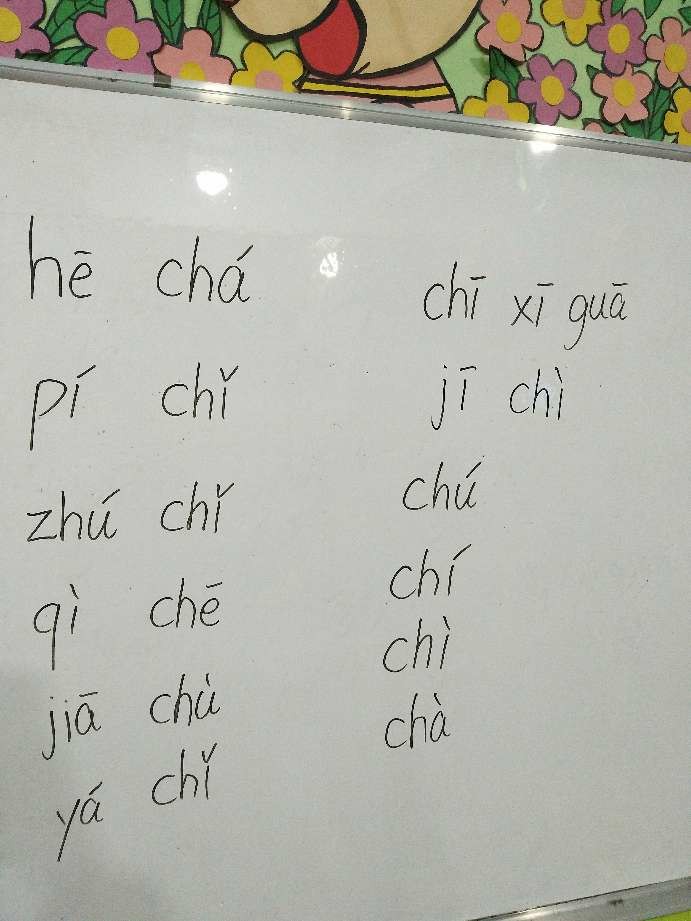 hē chá
pí chǐ
zhú chǐ
qì chē
jiā chù
yá chǐ
chī xī guā
jī chì
chú
chí
chì
chà